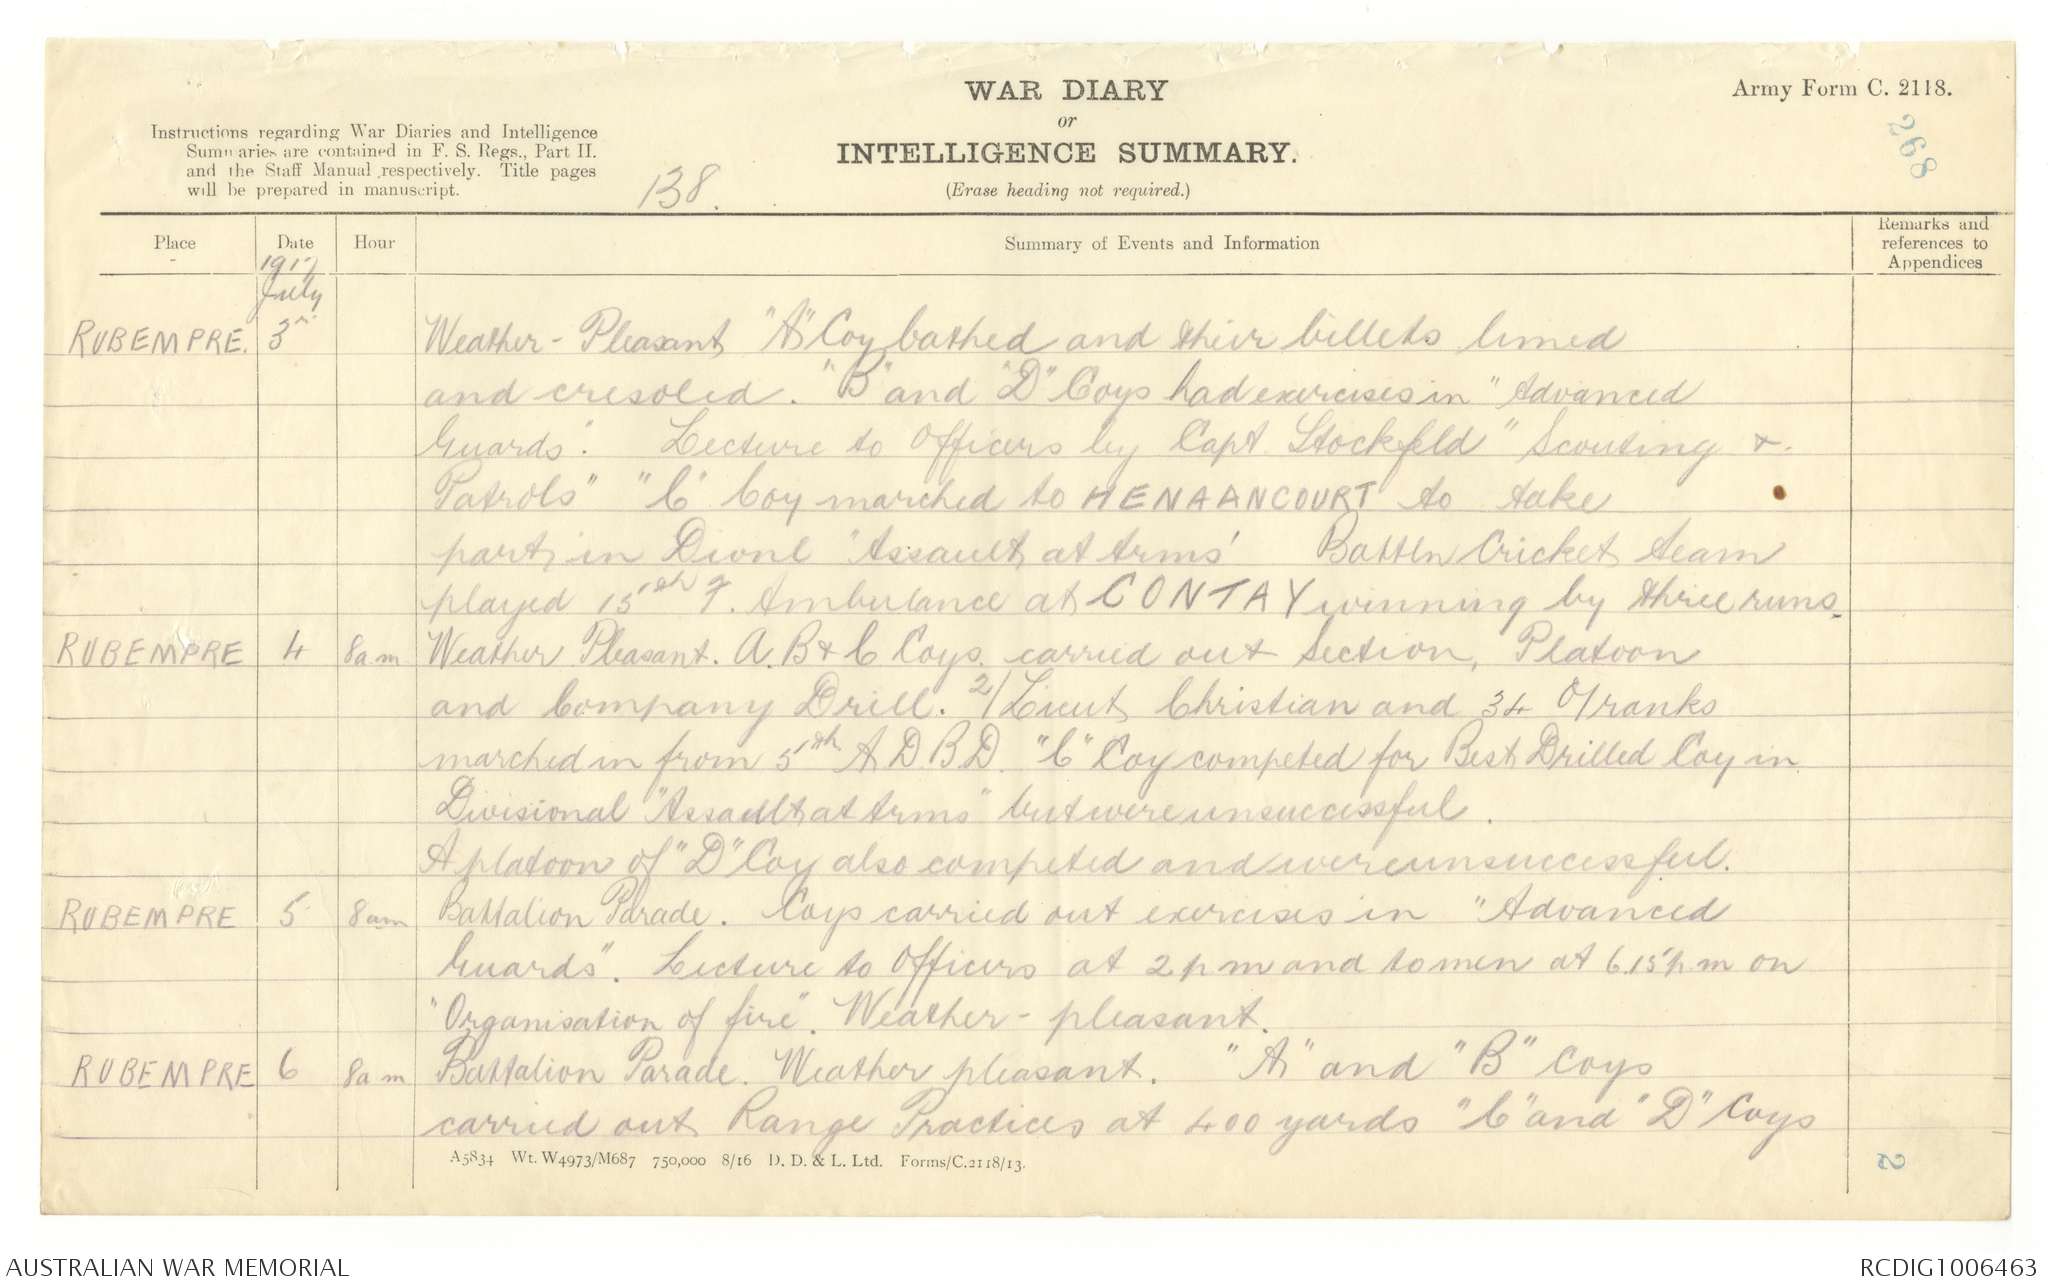 WAR DIARY
or
INTELLIGENCE SUMMARY.
(Erase heading not required.)
Army Form C. 2118.
298
Instructions regarding War Diaries and Intelligence
Summaries are contained in F. S. Regs., Part II.
and the Staff Manual respectively. Title pages
will be prepared in manuscript.
138.
Place Date Hour Summary of Events and Information Remarks and references to Appendices
1917
July
RUBEMPRE. 3rd Weather - Pleasant "A" Coy bathed and their billets limed
and cresoled. "B" and "D" Coys had exercises in "Advanced
Guards". Lecture to Officers by Capt Stockfeld "Scouting &
Patrols" "C" Coy marched to HENAANCOURT to take
part in Divnl "Assault at Arms' Battln Cricket team
played 15th F. Ambulance at CONTAY winning by three runs.
RUBEMPRE 4 8am Weather Pleasant. A. B & C Coys. carried out Section, Platoon
and Company Drill. 2/Lieut Christian and 34 O/ranks
marched in from 5th A.D.B.D. "C" Coy competed for Best Drilled Coy in
Divisional "Assault at Arms" but were unsuccessful.
A platoon of "D" Coy also competed and were unsuccessful.
RUBEMPRE 5 8am Battalion Parade. Coys carried out exercises in "Advanced
Guards". Lecture to Officers at 2 p m and to men at 6.15 p m on
"Organisation of fire". Weather - pleasant.
RUBEMPRE 6 8am Battalion Parade. Weather pleasant. "A" and "B" Coys
carried out Range Practices at 400 yards "C" and "D" Coys
A5834 Wt. W4973/M687 750,000 8/16 D. D. & L. Ltd. Forms/C.2118/13.
2
AUSTRALIAN WAR MEMORIAL
RCDIG1006463